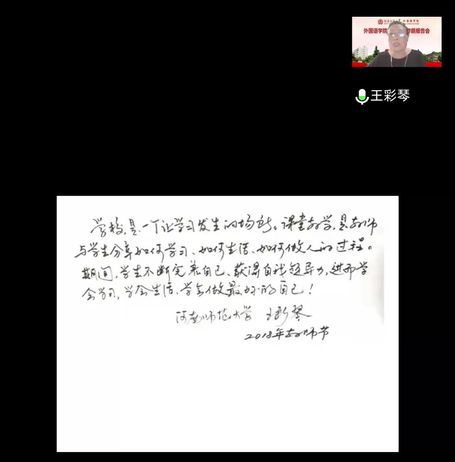 外国语学院
报告会
王彩琴
学校,是一个让学习发生的场所。课堂教学,是教师
与学生分享如何学习、如何生活、如何做人的过程。
期间,学生不断完善自己、获得自我领导力,进而学
会学习,学会生活,学会做最好的自己!
河南师范大学 王彩琴
2018年教师节